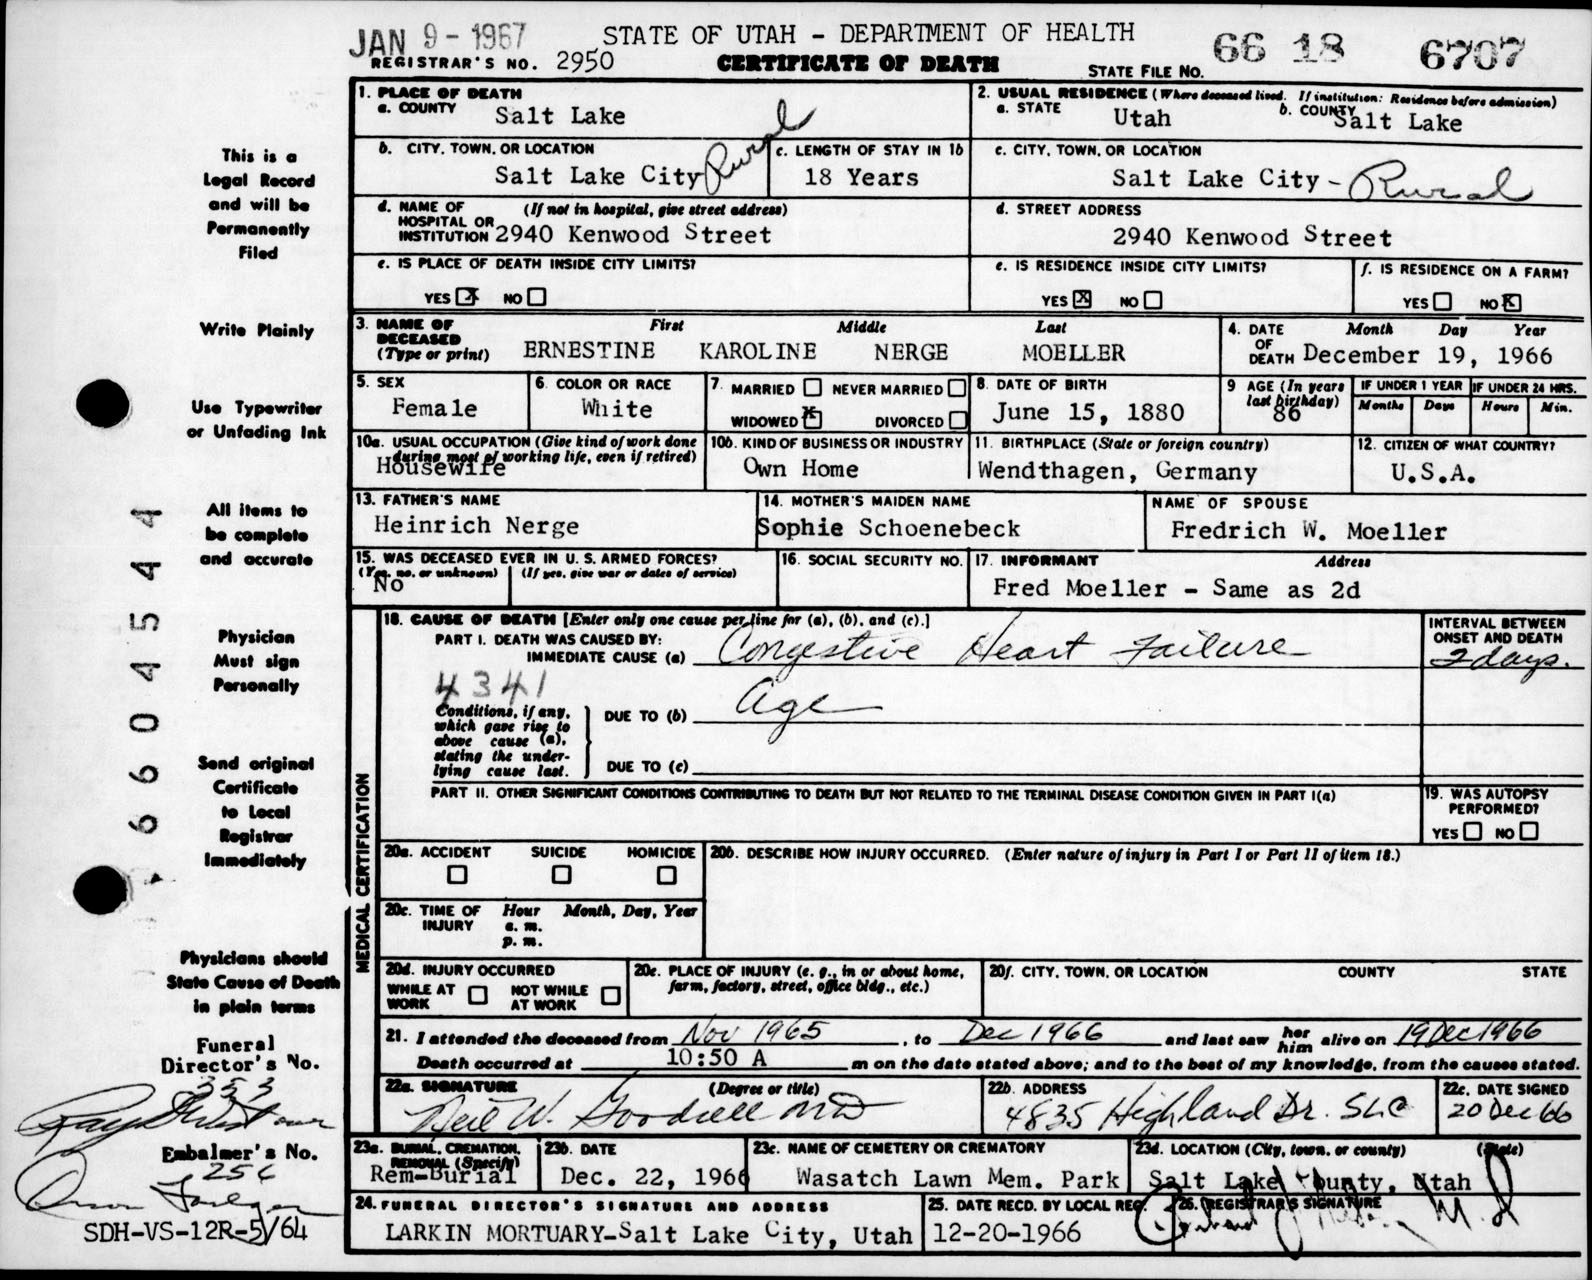 JAN 9 - 1967 STATE OF UTAH - DEPARTMENT OF HEALTH 66 18 6707
REGISTRAR'S NO. 2950 CERTIFICATE OF DEATH STATE FILE NO.
1. PLACE OF DEATH
a. COUNTY Salt Lake
2. USUAL RESIDENCE (Where deceased lived. If institution: Residence before admission)
a. STATE Utah b. COUNTY Salt Lake
b. CITY, TOWN, OR LOCATION
Salt Lake City Rural
c. LENGTH OF STAY IN 1b
18 Years
c. CITY, TOWN, OR LOCATION
Salt Lake City - Rural
d. NAME OF (If not in hospital, give street address)
HOSPITAL OR
INSTITUTION 2940 Kenwood Street
d. STREET ADDRESS
2940 Kenwood Street
e. IS PLACE OF DEATH INSIDE CITY LIMITS?
YES X NO
e. IS RESIDENCE INSIDE CITY LIMITS?
YES X NO
f. IS RESIDENCE ON A FARM?
YES NO X
3. NAME OF First Middle Last
DECEASED
(Type or print) ERNESTINE KAROLINE NERGE MOELLER
4. DATE Month Day Year
OF
DEATH December 19, 1966
5. SEX
Female
6. COLOR OR RACE
White
7. MARRIED NEVER MARRIED
WIDOWED X DIVORCED
8. DATE OF BIRTH
June 15, 1880
9 AGE (In years
last birthday)
86
IF UNDER 1 YEAR IF UNDER 24 HRS.
Months Days Hours Min.
10a. USUAL OCCUPATION (Give kind of work done
during most of working life, even if retired)
Housewife
10b. KIND OF BUSINESS OR INDUSTRY
Own Home
11. BIRTHPLACE (State or foreign country)
Wendthagen, Germany
12. CITIZEN OF WHAT COUNTRY?
U.S.A.
13. FATHER'S NAME
Heinrich Nerge
14. MOTHER'S MAIDEN NAME
Sophie Schoenebeck
NAME OF SPOUSE
Fredrich W. Moeller
15. WAS DECEASED EVER IN U. S. ARMED FORCES?
(Yes, no, or unknown) (If yes, give war or dates of service)
No
16. SOCIAL SECURITY NO.
17. INFORMANT Address
Fred Moeller - Same as 2d
MEDICAL CERTIFICATION
18. CAUSE OF DEATH [Enter only one cause per line for (a), (b), and (c).]
PART I. DEATH WAS CAUSED BY:
IMMEDIATE CAUSE (a) Congestive Heart Failure
INTERVAL BETWEEN
ONSET AND DEATH
2 days.
4341
Conditions, if any,
which gave rise to
above cause (a),
stating the under-
lying cause last.
DUE TO (b) Age
DUE TO (c)
PART II. OTHER SIGNIFICANT CONDITIONS CONTRIBUTING TO DEATH BUT NOT RELATED TO THE TERMINAL DISEASE CONDITION GIVEN IN PART I(a)
19. WAS AUTOPSY
PERFORMED?
YES NO
20a. ACCIDENT SUICIDE HOMICIDE
20b. DESCRIBE HOW INJURY OCCURRED. (Enter nature of injury in Part I or Part II of item 18.)
20c. TIME OF Hour Month, Day, Year
INJURY a. m.
p. m.
20d. INJURY OCCURRED
WHILE AT NOT WHILE
WORK AT WORK
20e. PLACE OF INJURY (e. g., in or about home,
farm, factory, street, office bldg., etc.)
20f. CITY, TOWN, OR LOCATION COUNTY STATE
21. I attended the deceased from Nov 1965, to Dec 1966 and last saw her him alive on 19 Dec 1966
Death occurred at 10:50 A m on the date stated above; and to the best of my knowledge, from the causes stated.
22a. SIGNATURE (Degree or title)
Neil W. Goodsell MD
22b. ADDRESS
4835 Highland Dr. SLC
22c. DATE SIGNED
20 Dec 66
23a. BURIAL, CREMATION,
REMOVAL (Specify)
Rem-Burial
23b. DATE
Dec. 22, 1966
23c. NAME OF CEMETERY OR CREMATORY
Wasatch Lawn Mem. Park
23d. LOCATION (City, town, or county) (State)
Salt Lake County, Utah
24. FUNERAL DIRECTOR'S SIGNATURE AND ADDRESS
LARKIN MORTUARY-Salt Lake City, Utah
25. DATE RECD. BY LOCAL REG.
12-20-1966
26. REGISTRAR'S SIGNATURE
M.D
This is a
Legal Record
and will be
Permanently
Filed
Write Plainly
Use Typewriter
or Unfading Ink
All items to
be complete
and accurate
Physician
Must sign
Personally
Send original
Certificate
to Local
Registrar
Immediately
Physicians should
State Cause of Death
in plain terms
6604544
Funeral
Director's No.
353
Embalmer's No.
256
SDH-VS-12R-5/64